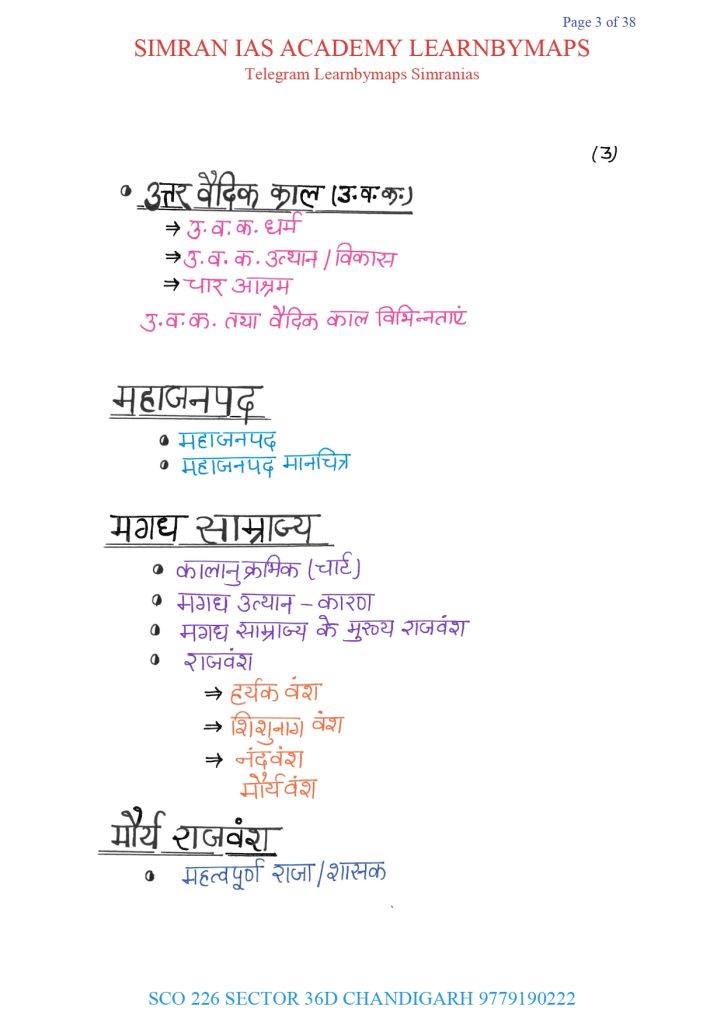 Page 3 of 38
SIMRAN IAS ACADEMY LEARNBYMAPS
Telegram Learnbymaps Simranias
(3)
• उत्तर वैदिक काल (उ.व.क.)
⇒ उ.व.क. धर्म
⇒ उ.व.क. उत्थान/विकास
⇒ चार आश्रम
उ.व.क. तथा वैदिक काल विभिन्नताएं
महाजनपद
• महाजनपद
• महाजनपद मानचित्र
मगध साम्राज्य
• कालानुक्रमिक (चार्ट)
• मगध उत्थान - कारण
• मगध साम्राज्य के मुख्य राजवंश
• राजवंश
⇒ हर्यक वंश
⇒ शिशुनाग वंश
⇒ नंदवंश
मौर्यवंश
मौर्य राजवंश
• महत्वपूर्ण राजा/शासक
SCO 226 SECTOR 36D CHANDIGARH 9779190222